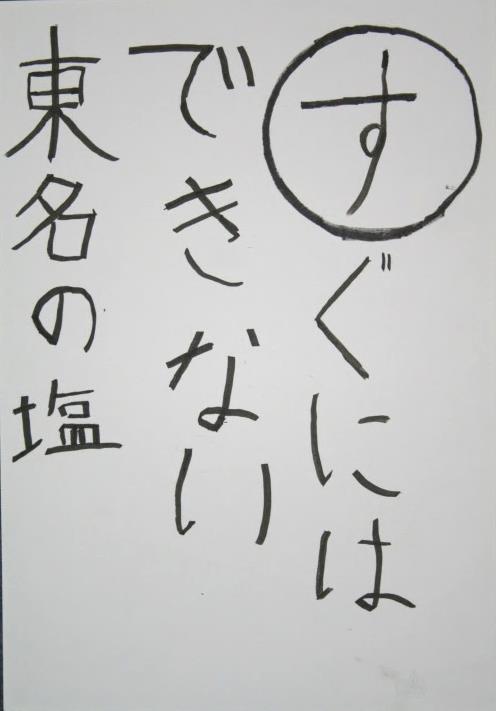 すぐには
できない
東名の塩